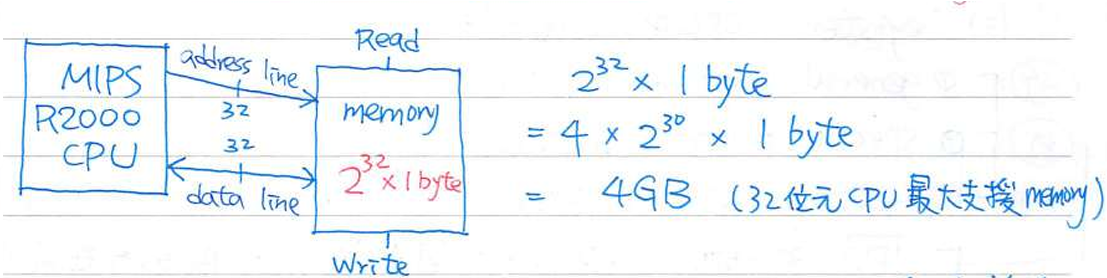 MIPS
R2000
CPU
address line
32
32
data line
Read
memory
2^32 × 1 byte
Write
2^32 × 1 byte
= 4 × 2^30 × 1 byte
= 4GB (32位元CPU最大支援memory)